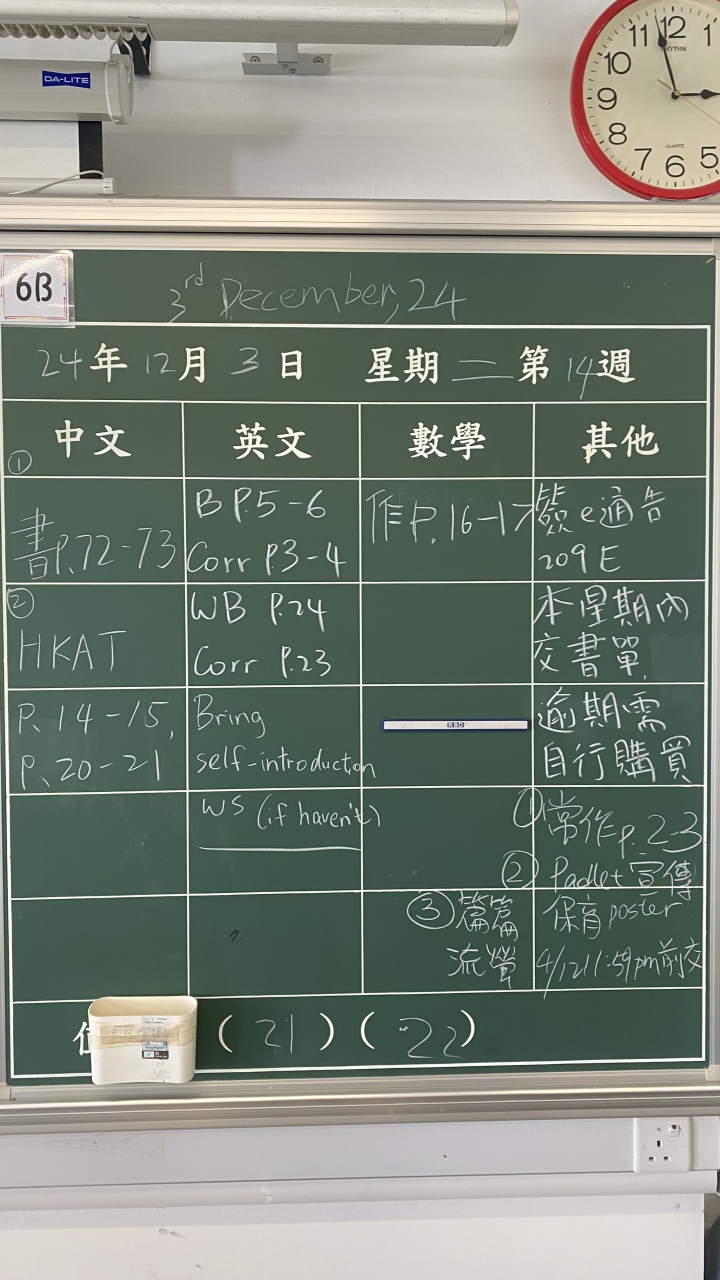 DA-LITE
11 12
RHYTHM
10
9
8
7 6 5
QUARTZ
6B
3rd December, 24
24年12月3日 星期二 第14週
中文 英文 數學 其他
①
書P.72-73
②
HKAT
P. 14-15,
P. 20-21
B P.5-6
Corr P.3-4
WB P.24
Corr P.23
Bring
self-introduction
WS (if haven't)
作P. 16-17
RBD
簽e通告
209E
本星期內
交書單
逾期需
自行購買
①常作P.2-3
②Padlet宣傳
保育poster
4/12 11:59pm前交
③篇篇
流螢
(21)(22)